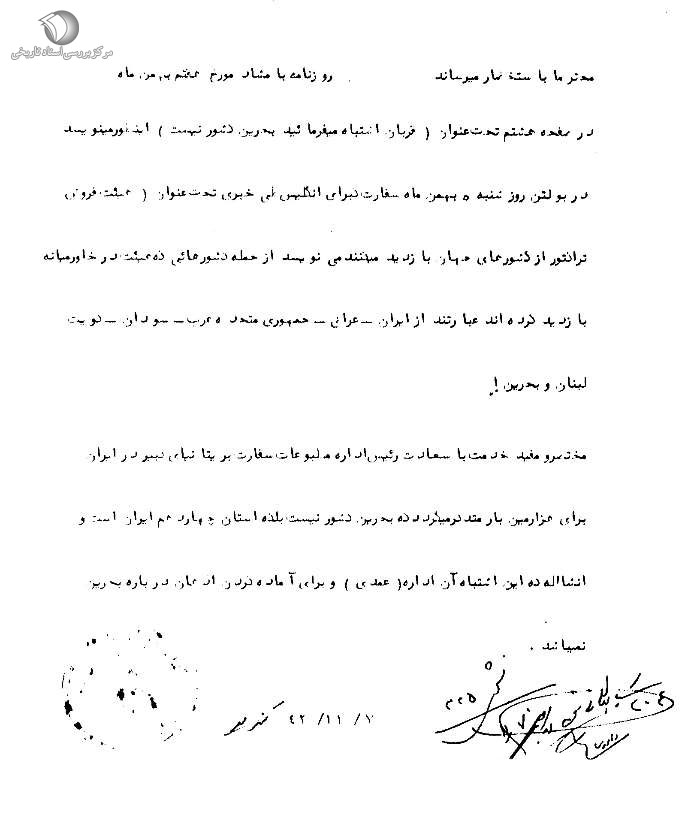 مرکز بررسی اسناد تاریخی
محترما باستحضار میرساند روزنامه بامشاد مورخ هفتم بهمن ماه
در صفحه هشتم تحت عنوان ( قربان اشتباه میفرمائید بحرین کشور نیست ) اینطور مینویسد
در بولتن روز شنبه ۵ بهمن ماه سفارت کبرای انگلیس طی خبری تحت عنوان ( هیئت فروش
تراکتور از کشورهای جهان بازدید میکنند می نویسد از جمله کشورهائی که هیئت در خاورمیانه
بازدید کرده اند عبارتند از ایران ـ عراق ـ جمهوری متحده عرب ـ سودان ـ کویت
لبنان و بحرین !
مختصر و مفید خدمت با سعادت رئیس اداره مطبوعات سفارت بریتانیای کبیر در ایران
برای هزارمین بار متذکر میگردد که بحرین کشور نیست بلکه استان چهاردهم ایران است و
انشااله که این اشتباه آن اداره ( عمدی ) و برای آماده کردن اذهان در باره بحرین
نمیباشد .
۴۲/۱۱/۷